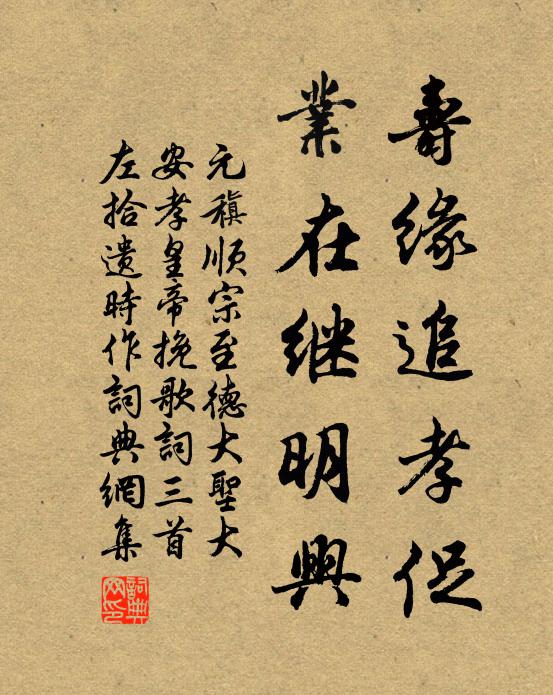 壽緣追孝促
業在继明興
元稹順宗至德大聖大
安孝皇帝挽歌詞三首
左拾遺時作詞典網集
詞典網印